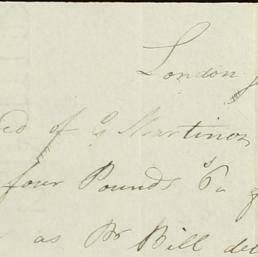 London
ed of G Martinez
four Pounds 6/
as Pr Bill del